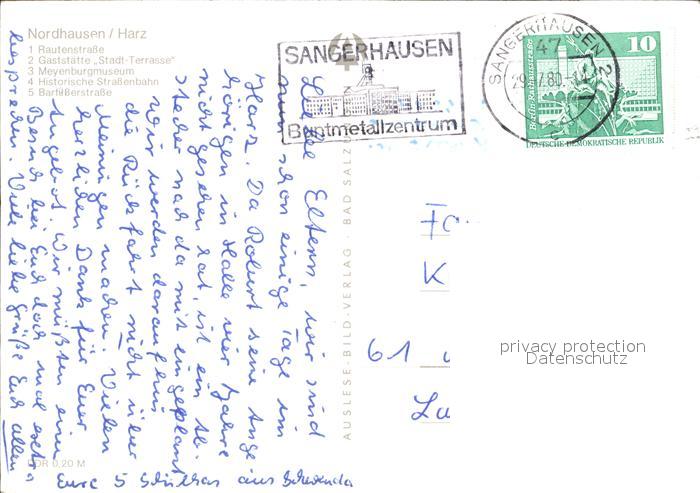 Nordhausen / Harz
1 Rautenstraße
2 Gaststätte „Stadt-Terrasse"
3 Meyenburgmuseum
4 Historische Straßenbahn
5 Barfüßerstraße
SANGERHAUSEN
Buntmetallzentrum
SANGERHAUSEN 2
47
10
Berlin · Rathausstraße
DEUTSCHE DEMOKRATISCHE REPUBLIK
Liebe Eltern, wir sind
nun schon einige Tage im
Harz. Da Robert seine Ange
hörigen in Halle vier Jahre
nicht gesehen hat, ist ein Ab-
stecher nach da mit eingeplant
Wir werden daraufhin
die Rückfahrt nicht über
Meiningen machen. Vielen
herzlichen Dank für Euer
Angebot. Wir müßten einen
Besuch bei Euch doch mal extra
besprechen. Viele liebe Grüße Euch allen
Eure 5 aus Schwenda
AUSLESE-BILD-VERLAG · BAD SALZ
Fa
K
61
Lu
privacy protection
Datenschutz
DDR 0,20 M